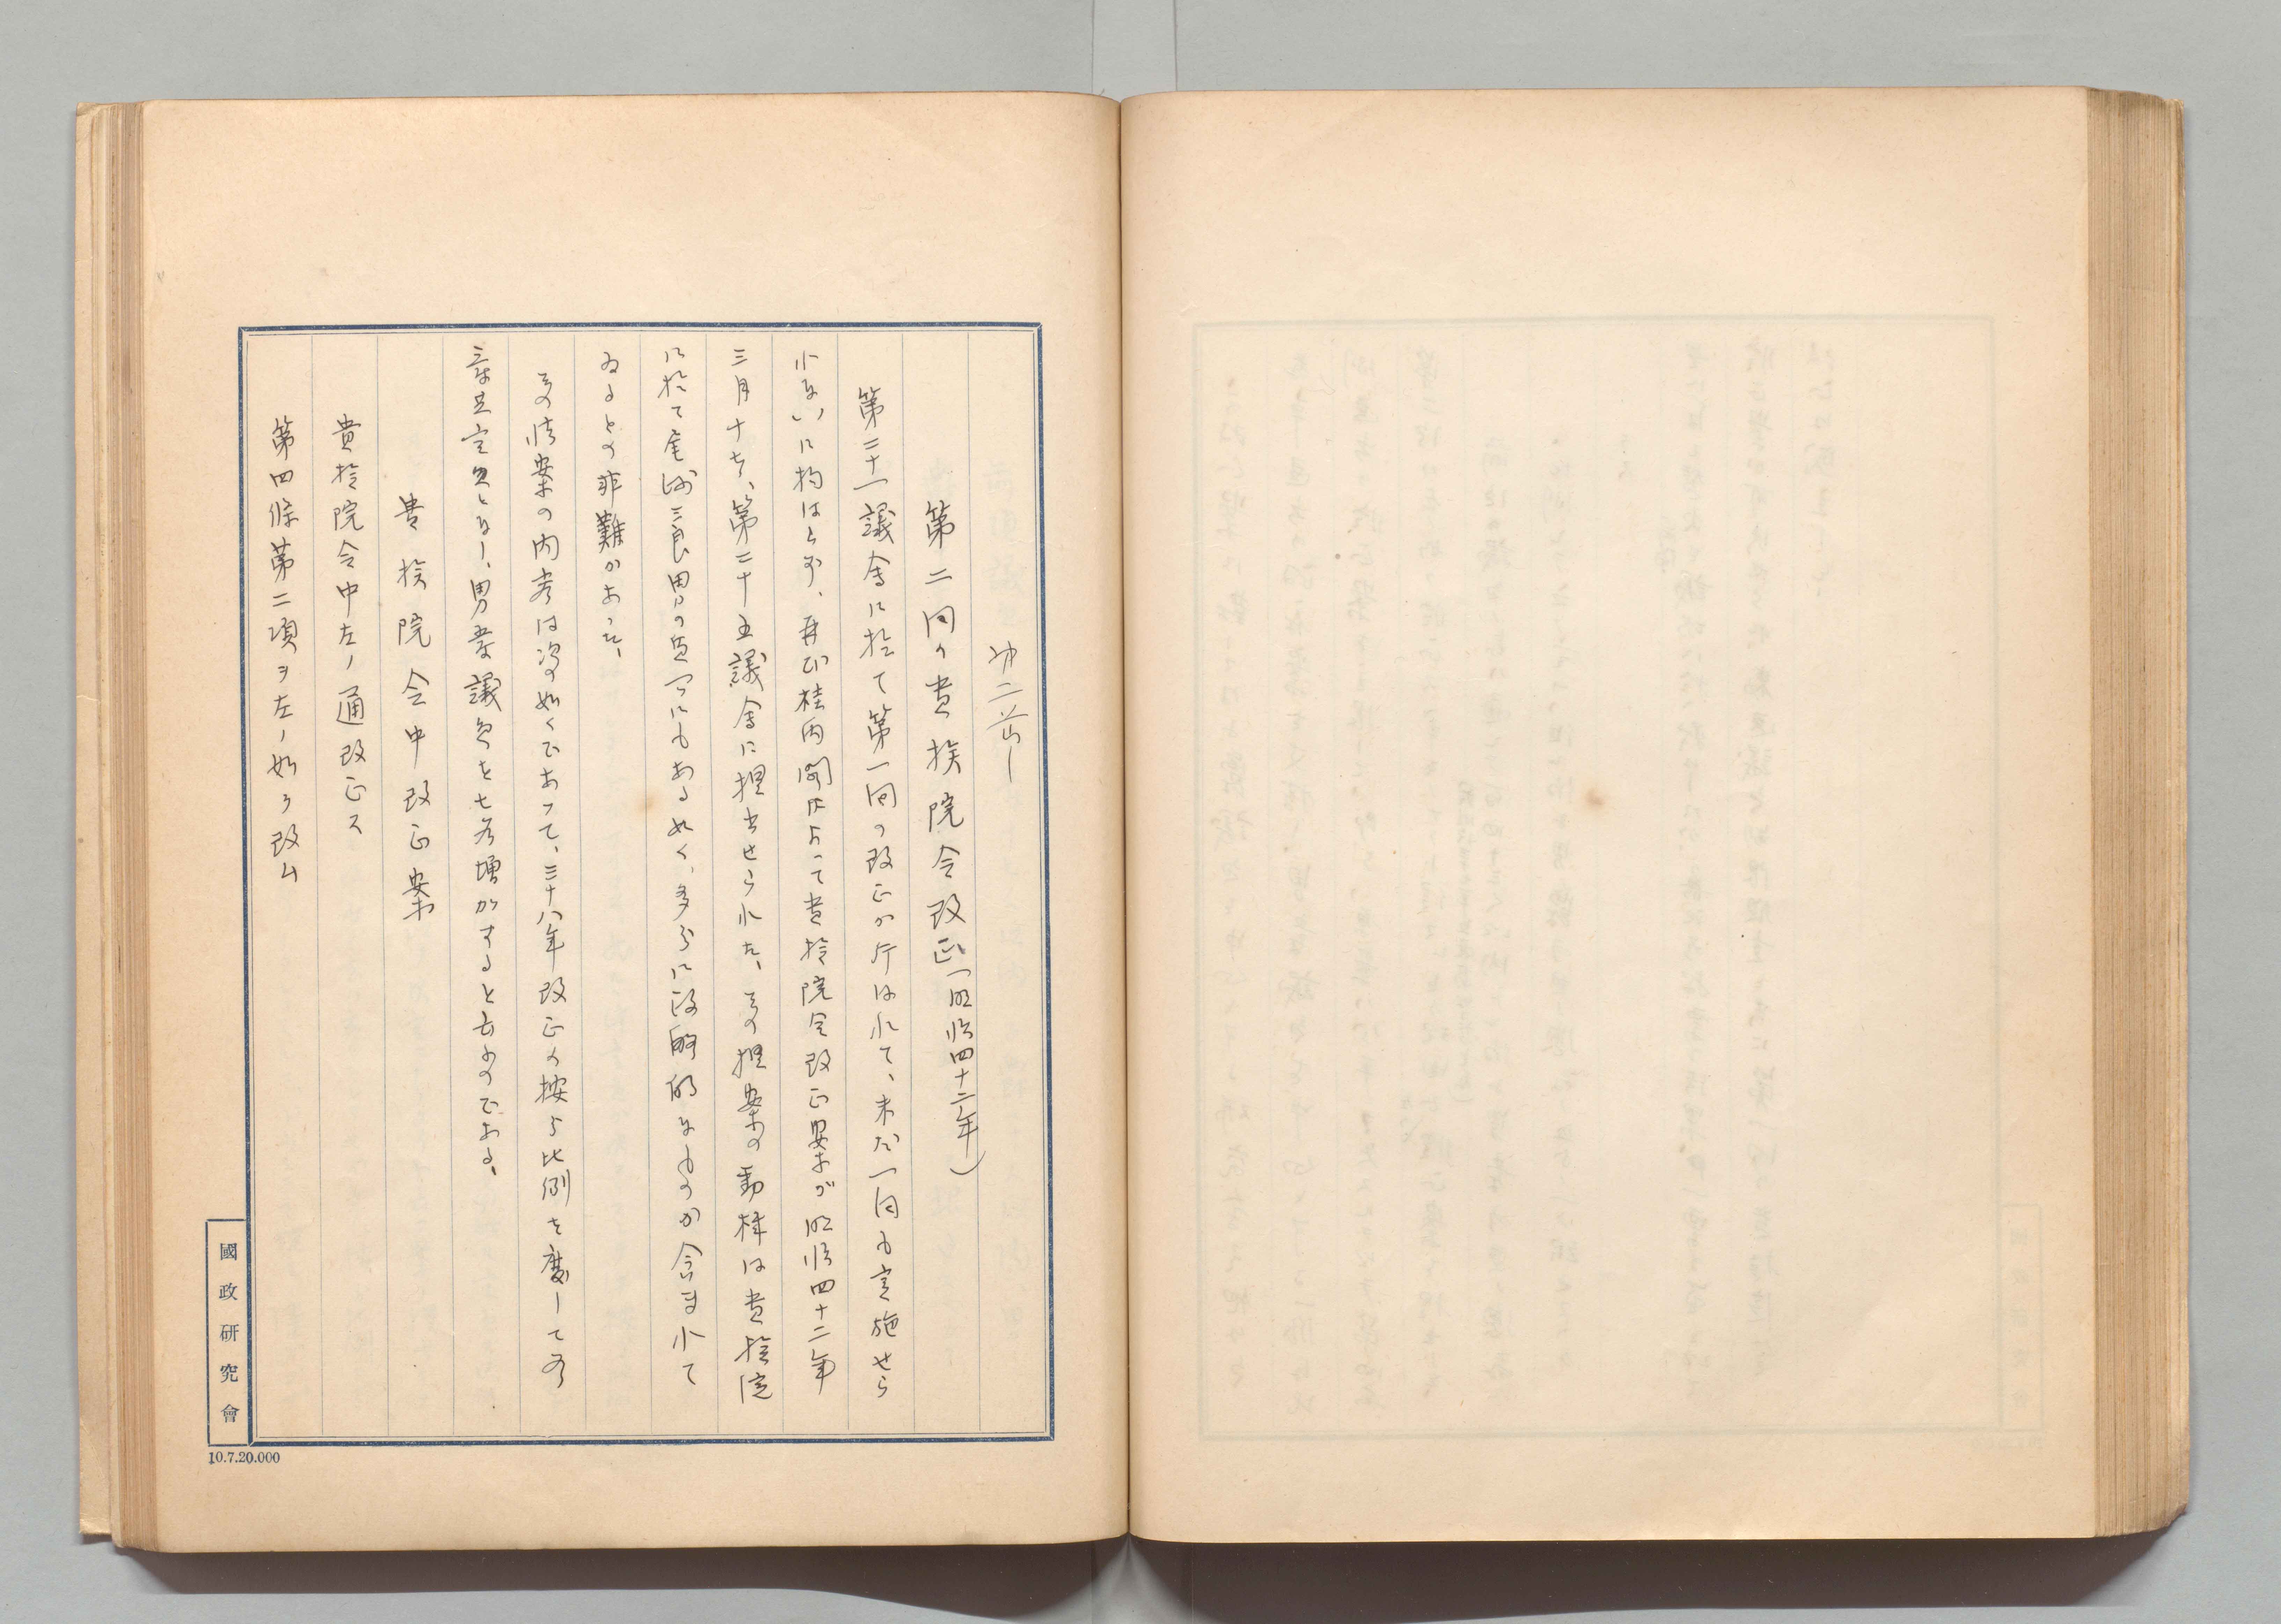 第二節
第二回の貴族院令改正（明治四十二年）
第二十一議會に於て第一回の改正が行はれて、未だ一回も実施せら
れないに拘はらず、再び桂内閣によって貴族院令改正案が明治四十二年
三月十七、第二十五議會に提出せられた、その提案の動機は貴族院
に於て尾州三良男の にもある如く、多分に政略的なものが含まれて
ゐるとの非難があった、
その法案の内容は次の如くであって、三十八年改正の按分比例を廢して各
爵共定員となし、男爵議員を七名増加すると云ふのである、
貴族院令中改正案
貴族院令中左ノ通改正ス
第四條第二項ヲ左ノ如ク改ム
國政研究會
10.7.20.000